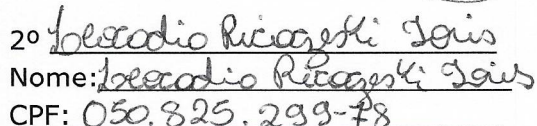 2º Leocadio Ricaczeski Joris
Nome: Leocadio Ricaczeski Joris
CPF: 050.825.299-78